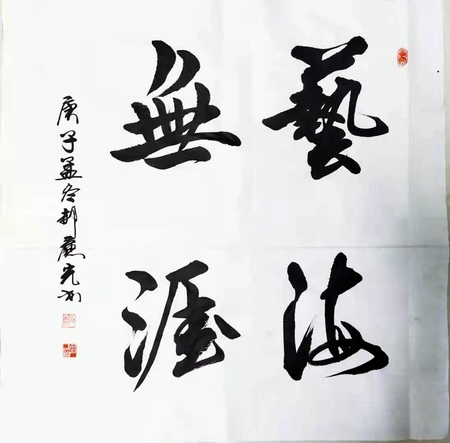 藝海
無涯
庚子孟冬郝光书